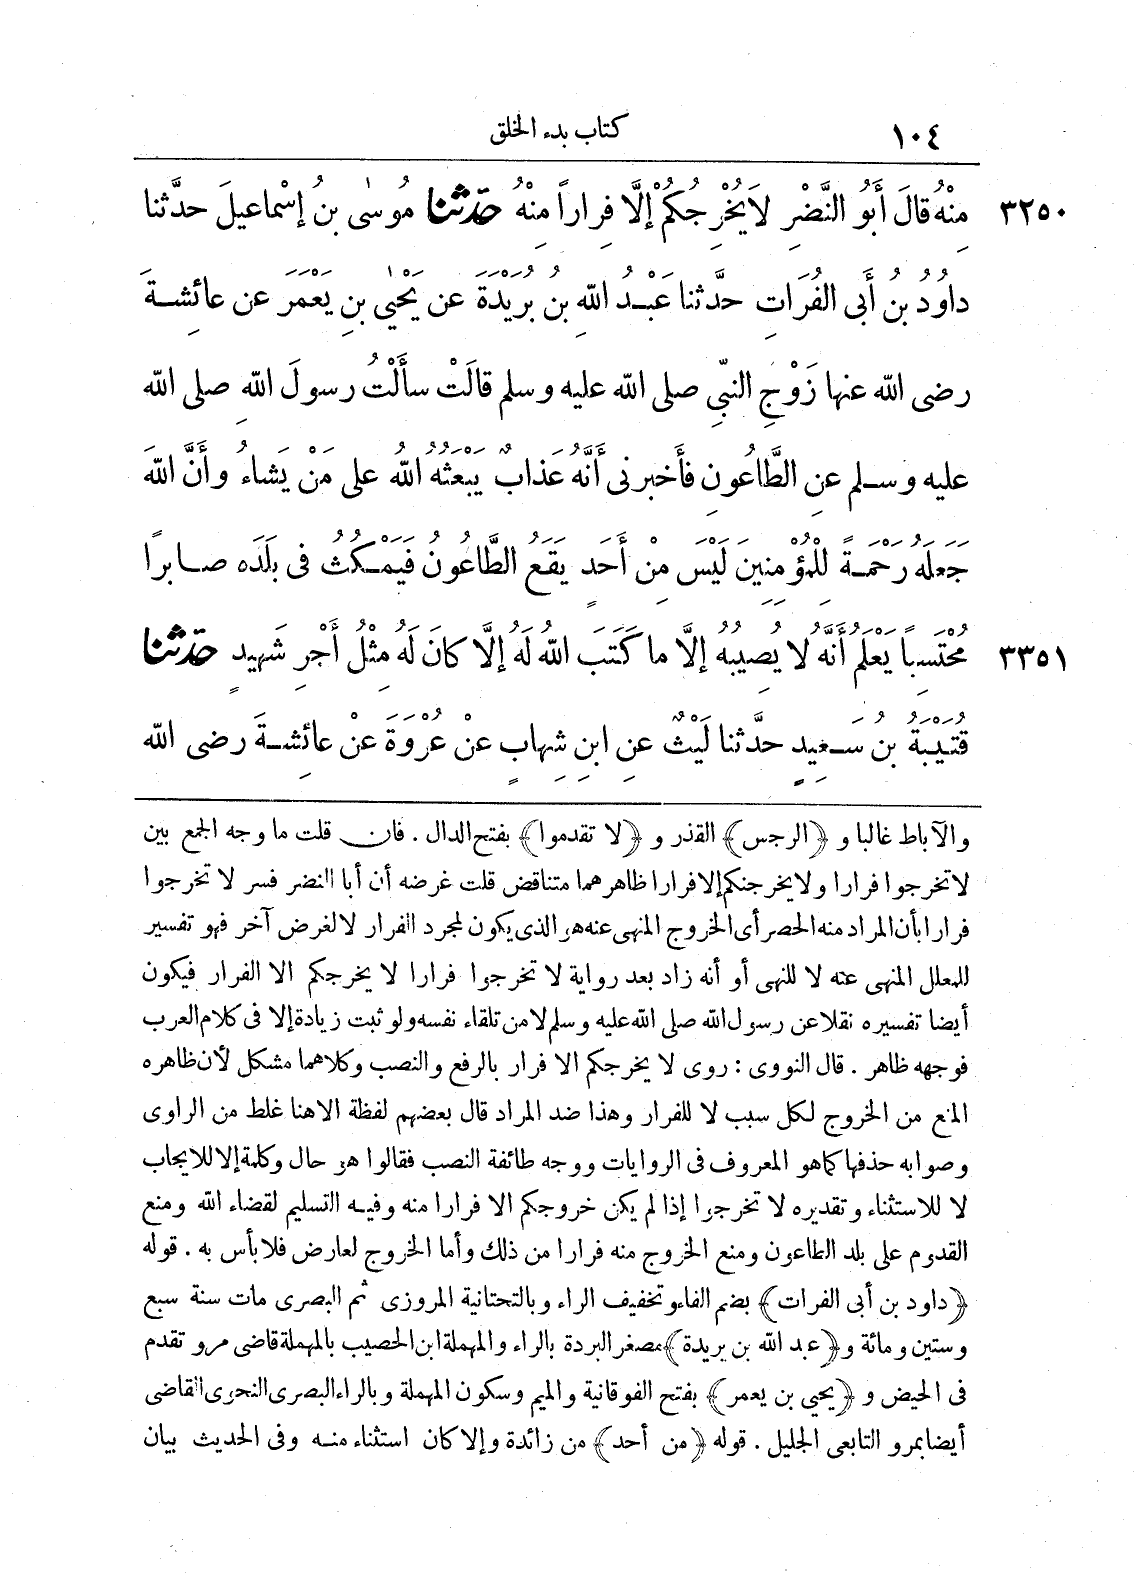 ١٠٤ كتاب بدء الخلق
٣٢٥٠ مِنْهُ قالَ أَبُو النَّضْرِ لاَيُخْرِجُكُمْ إلَّا فِراراً مِنْهُ حدّثنا مُوسٰى بنُ إسْماعيلَ حدَّثنا
داوُدُ بنُ أَبى الفُرَاتِ حدَّثنا عَبْدُ اللهِ بنُ بُرَيْدَةَ عن يَحْيٰى بنِ يَعْمَرَ عن عائِشةَ
رضى الله عنها زَوْجِ النبّيِ صلى الله عليه وسلم قالَتْ سأَلْتُ رسولَ اللهِ صلى الله
عليه وسلم عنِ الطَّاعُونِ فأَخبرنى أَنَّهُ عَذابٌ يَبْعَثُهُ اللهُ على مَنْ يَشاءُ وأَنَّ اللهَ
جَعَلَهُ رَحْمَةً لِلْمُؤْمِنِينَ لَيْسَ مِنْ أَحَدٍ يَقَعُ الطَّاعُونُ فَيَمْكُثُ فى بلَدَه صابراً
٣٣٥١ مُحْتَسِباً يَعْلَمُ أَنَّهُ لا يُصِيبُهُ إلَّا ما كَتَبَ اللهُ لَهُ إلَّا كانَ لَهُ مِثْلُ أَجْرِ شَهِيدٍ حدّثنا
قُتَيْبَةُ بنُ سَعِيدٍ حدَّثنا لَيْثٌ عنِ ابنِ شِهابٍ عنْ عُرْوَةَ عنْ عائِشةَ رضى الله
والآباط غالبا و ﴿الرجس﴾ القذر و ﴿لا تقدموا﴾ بفتح الدال . فان قلت ما وجه الجمع بين
لا تخرجوا فرارا ولايخرجنكم إلافرارا ظاهرهما متناقض قلت غرضه أن أبا النضر فسر لا تخرجوا
فرارا بأن المراد منه الحصر أى الخروج المنهى عنه هو الذى يكون لمجرد الفرار لا لغرض آخر فهو تفسير
للمعلل المنهى عنه لا للنهى أو أنه زاد بعد رواية لا تخرجوا فرارا لا يخرجكم الا الفرار فيكون
أيضا تفسيره نقلا عن رسول الله صلى الله عليه وسلم لا من تلقاء نفسه ولو ثبت زيادة إلا فى كلام العرب
فوجهه ظاهر . قال النووى : روى لا يخرجكم الا فرار بالرفع والنصب وكلاهما مشكل لأن ظاهره
المنع من الخروج لكل سبب لا للفرار وهذا ضد المراد قال بعضهم لفظة الا هنا غلط من الراوى
وصوابه حذفها كما هو المعروف فى الروايات ووجه طائفة النصب فقالوا هو حال وكلمة إلا للايجاب
لا للاستثناء وتقديره لا تخرجوا إذا لم يكن خروجكم الا فرارا منه وفيه التسليم لقضاء الله ومنع
القدوم على بلد الطاعون ومنع الخروج منه فرارا من ذلك وأما الخروج لعارض فلا بأس به . قوله
﴿داود بن أبى الفرات﴾ بضم الفاء وتخفيف الراء وبالتحتانية المروزى ثم البصرى مات سنة سبع
وستين ومائة و ﴿عبد الله بن بريدة﴾ مصغر البردة بالراء والمهملة ابن الحصيب بالمهملة قاضى مرو تقدم
فى الحيض و ﴿يحيى بن يعمر﴾ بفتح الفوقانية والميم وسكون المهملة وبالراء البصرى النحوى القاضى
أيضا بمرو التابعى الجليل . قوله ﴿من أحد﴾ من زائدة وإلا كان استثناء منه وفى الحديث بيان